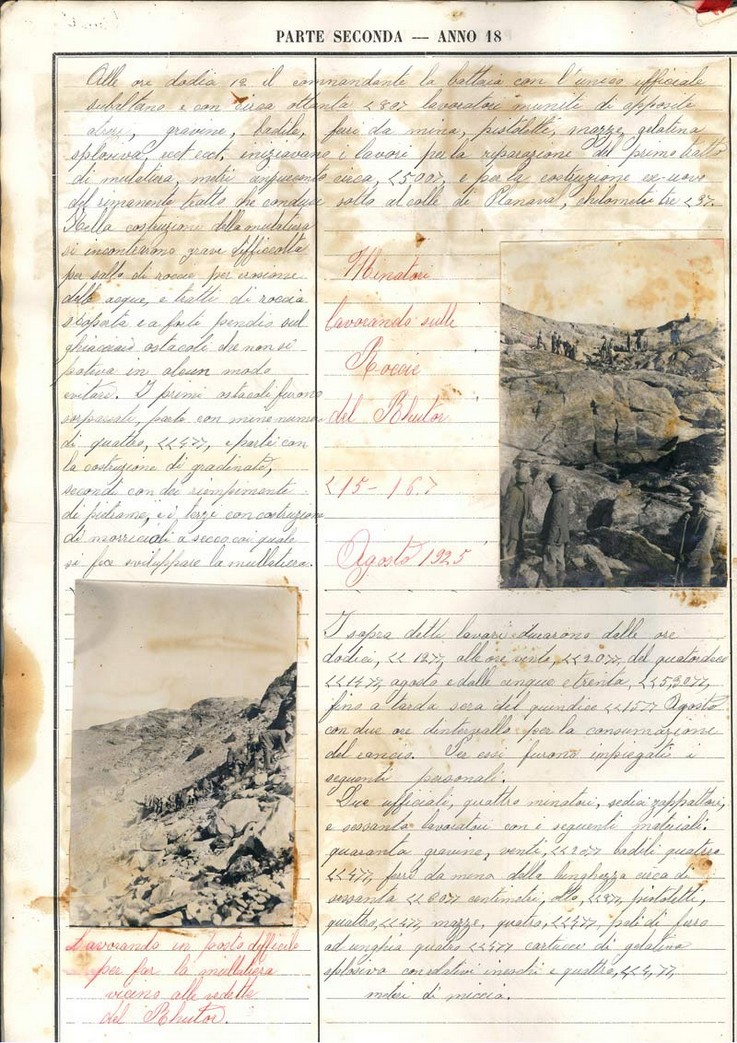 PARTE SECONDA — ANNO 18
Alle ore dodici 12 il commandante la battaia con l'unico ufficiale
subaltano e con circa ottanta <80> lavoratori muniti di apposte
gravine, badile, ferri da mina, pistoletti, mazze, gelatina
splosiva, ecct ecct, iniziavano i lavori per la riparazione del primo tratto
di mulatiera, metri cinquecento circa, <<500>>, e per la costruzione ex-novo
del rimanente tratto che conduce sotto al colle di Planaval, chilometri tre <3>.
Nella costruzione della mulatiera
si incontrarono grave difficoltà
per salto di roccie per erosione
delle acque, e tratti di roccia
scoperta e a forte pendio sul
ghiacciaio ostacoli che non si
poteva in alcun modo
evitare. I primi ostacoli furono
sorpassati, parte con mine numero
di quattro, <<4>>, e parte con
la costruzione di gradinate,
secondi con dei riempimenti
di pietrame, e i terzi con costruzione
di morricioli a secco coi quale
si fece sviluppare la mullatiera.
Minatori
lavorando sulle
Roccie
del Rhutor
<15-16>
Agosto 1925
Lavorando in posto difficile
per far la mullatiera
vicino alle vedette
del Rhutor.
I sopra detti lavori durarono dalle ore
dodici, << 12>>, alle ore venti, <<20>>, del quatordici
<<14>>, agosto e dalle cinque e trenta, <<5,30>>,
fino a tarda sera del quindice <<15>> Agosto
con due ore d'intervallo per la consumazione
del rancio. Per essi furono impiegati i
seguenti personali.
Due ufficiali, quattro minatori, sedici zappattori,
e sessanta lavoratori con i seguenti materiali.
quaranta gravine, venti, <<20>> badili quattro
<<4>>, ferri da mina della lunghezza circa di
sessanta <<60>> centimetri, otto, <<8>>, pistoletti,
quattro, <<4>>, mazze, quatro, <<4>>, pali di ferro
ad unghia quatro <<4>> cartucci di gelatina
splosiva con relativi ineschi e quattro, <<4>>,
metri di miccia.